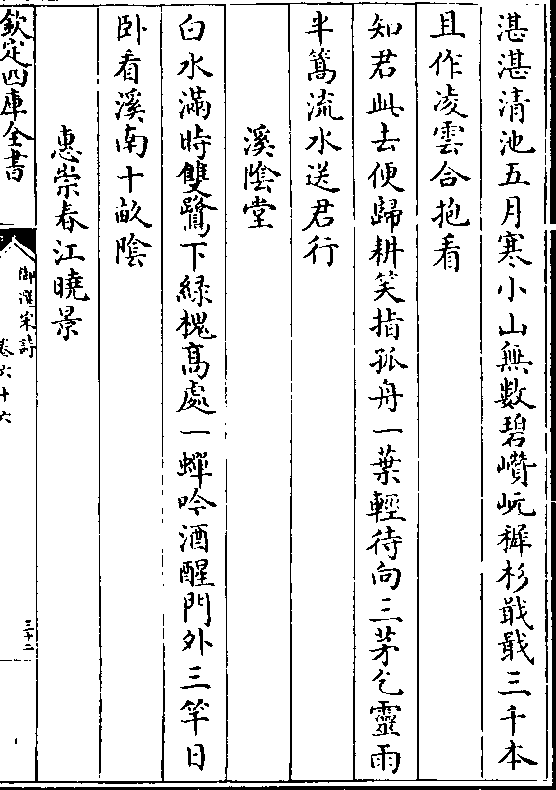 湛湛清池五月寒小山無數碧巑岏穉杉戢戢三千本
且作凌雲合抱看
知君此去便歸耕笑指孤舟一葉輕待向三茅乞靈雨
半篙流水送君行
溪陰堂
白水滿時雙鷺下綠槐髙處一蟬吟酒醒門外三竿日
卧看溪南十畝陰
惠崇春江曉景
欽定四庫全書
御選宋詩
卷六十六
三十二